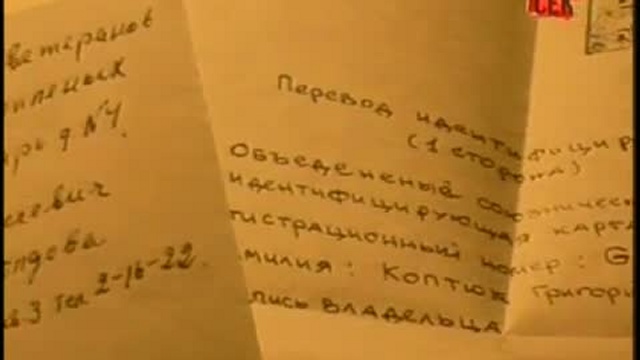 СЕК
ветеранов
пленых
д №4.
евич
лдова
3 тел 2-16-22.
Перевод идентифицир
(1 сторона)
Объедененый союзничес
идентифицирующая карта
гистрационный номер: G
милия: Коптюк Григори
пись владельца